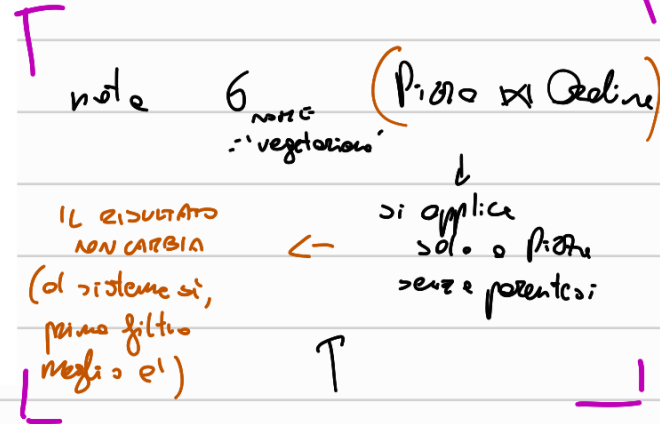 nota σ NOME = 'vegetariana' (Pizza ⋈ Ordine)
↓
si applica
solo a Pizza
senza parentesi
←
IL RISULTATO
NON CAMBIA
(al sistema sì,
prima filtro
meglio e')
↑